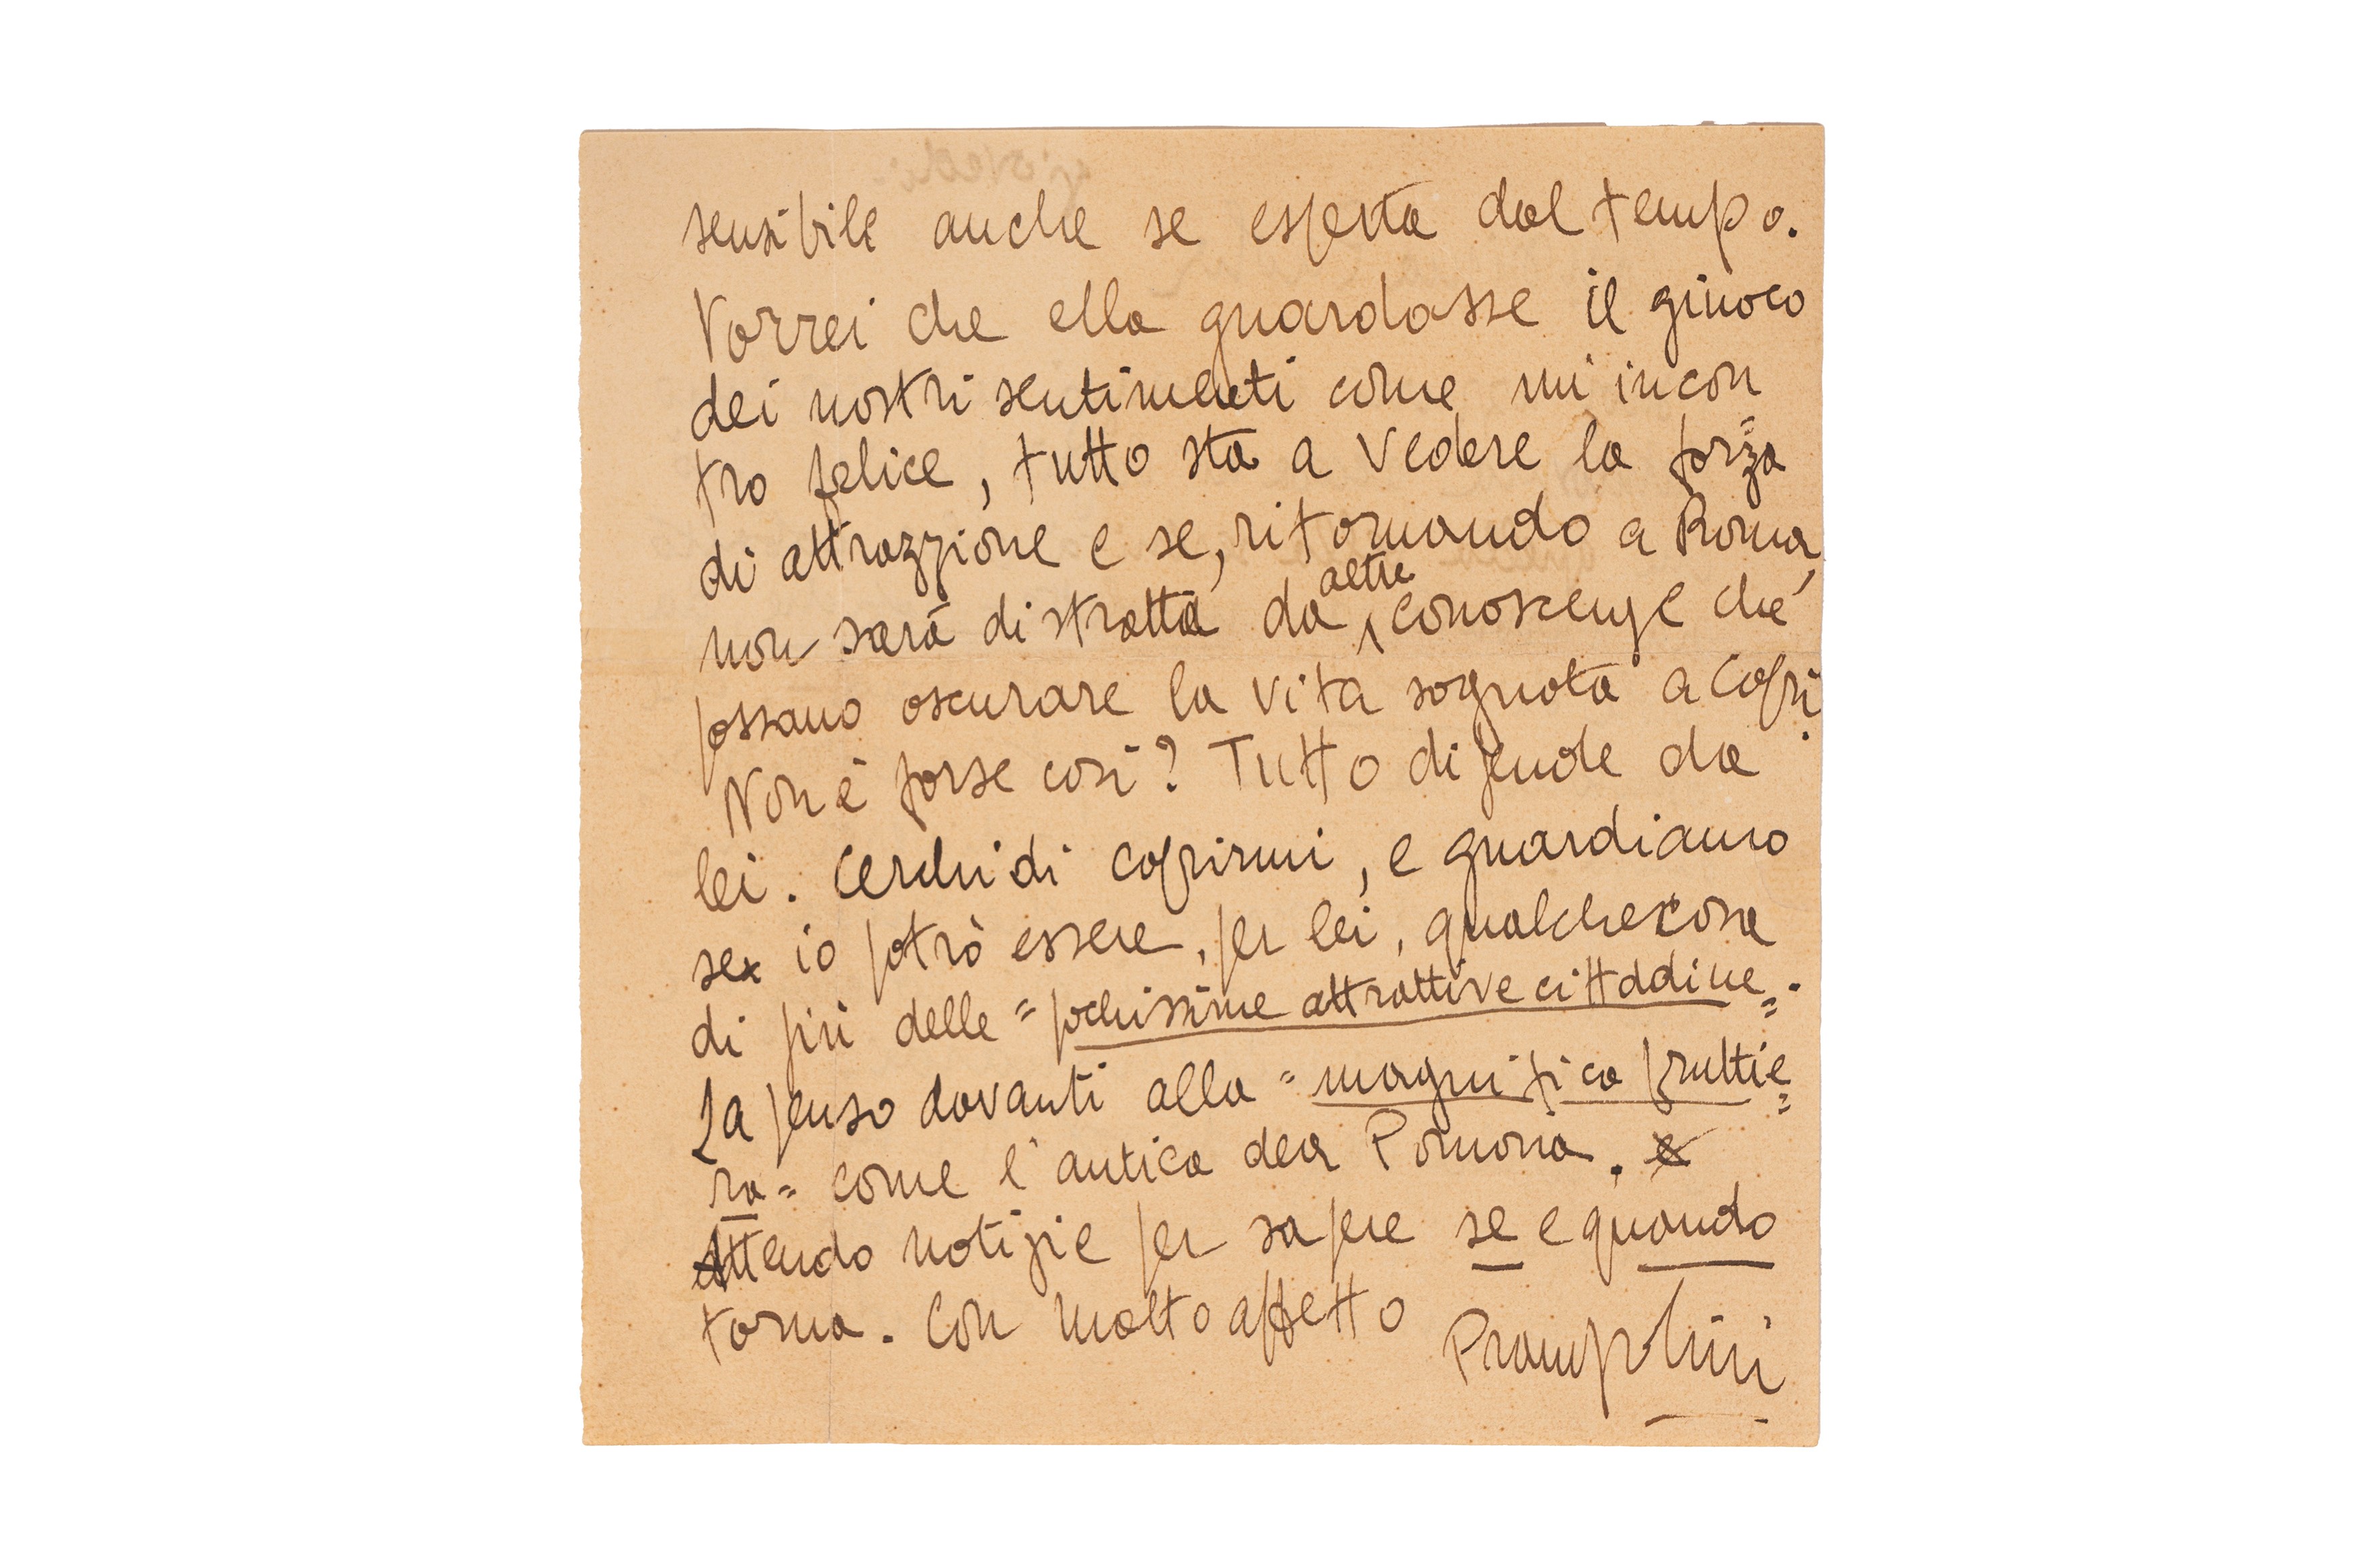 sensibile anche se esperta dal tempo.
Vorrei che ella guardasse il giuoco
dei nostri sentimenti come un incon
tro felice, tutto sta a vedere la forza
di attrazzione e se, ritornando a Roma,
non sarà distratta da altre conoscenze che
possano oscurare la vita sognata a Capri.
Non è forse così? Tutto dipende da
lei. Cerchi di capirmi, e guardiamo
se io potrò essere, per lei, qualchecosa
di più delle = pochissime attrattive cittadine =.
La penso davanti alla = magnifica fruttie=
ra = come l'antica dea Pomona.
Attendo notizie per sapere se e quando
torna. Con molto affetto
Prampolini
giovedì.